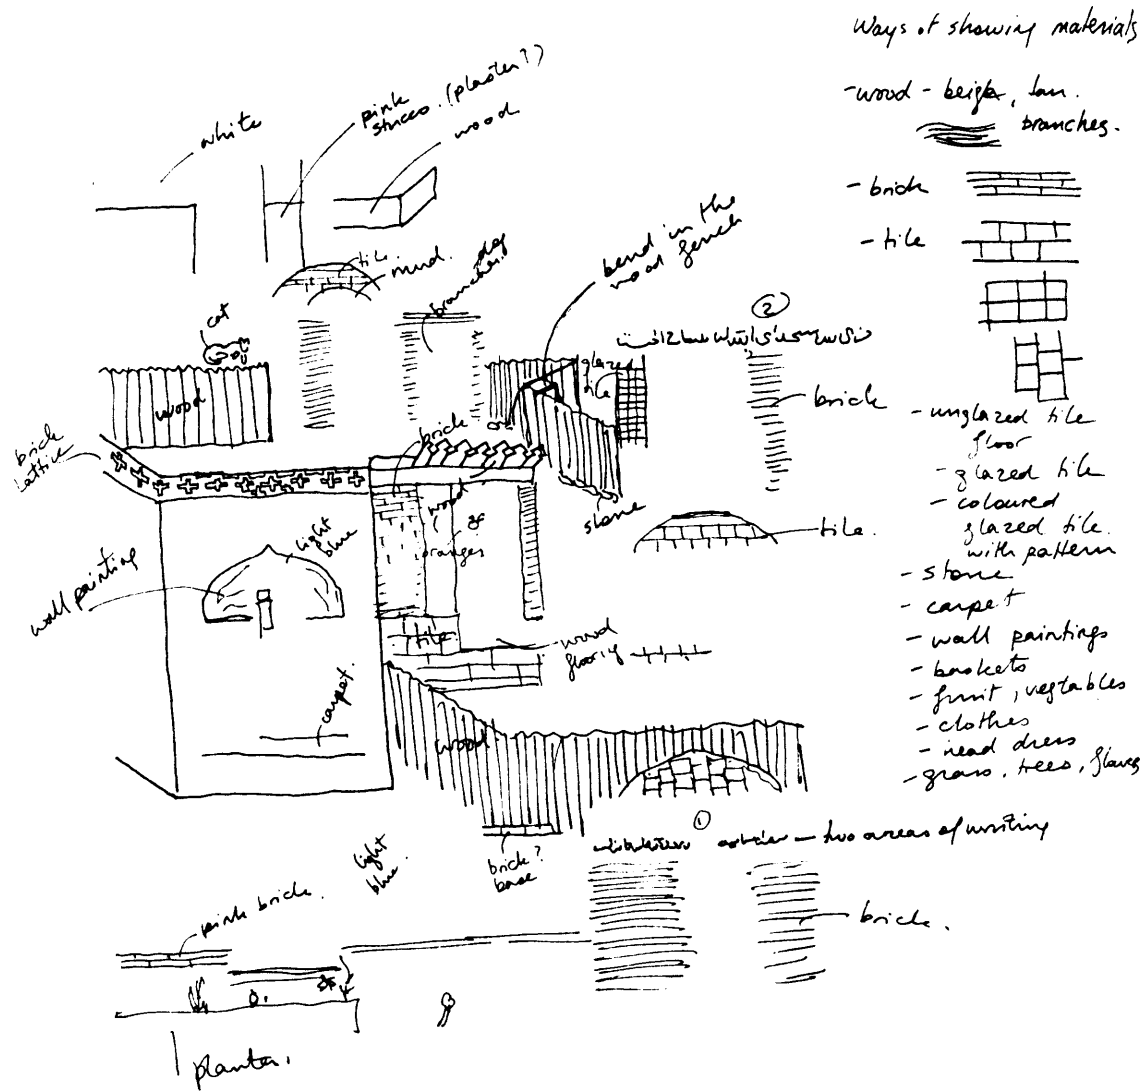 Ways of showing materials
- wood - beige, tan.
branches.
- brick
- tile
- unglazed tile
floor
- glazed tile
- coloured
glazed tile
with pattern
- stone
- carpet
- wall paintings
- baskets
- fruit, vegtables
- clothes
- head dress
- grass, trees, flowers
white
pink
stucco. (plaster?)
wood
tile
mud.
branches.
bend in the
wood fence
cat
wood
glazed
tile
②
brick
brick
lattice
brick
stone
wood
light
blue
oranges
wall painting
tile.
tile
wood
flooring
carpet.
wood
①
two areas of writing
light
blue
brick?
base
pink brick.
brick.
planter.